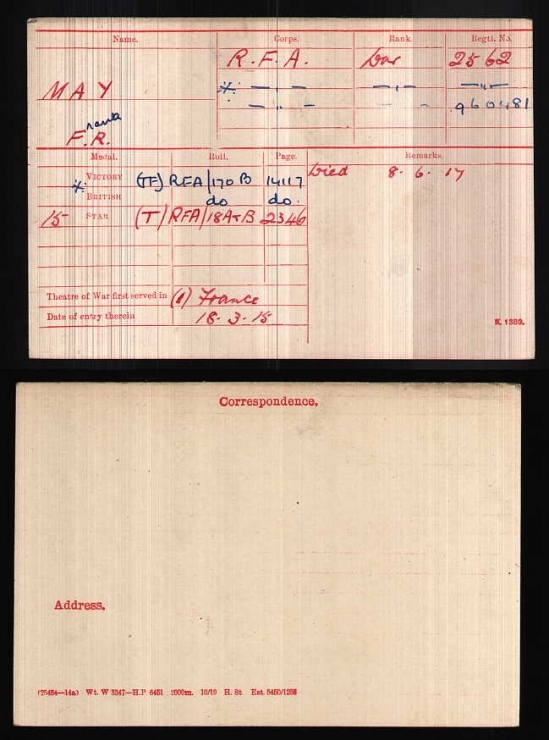 Name. Corps. Rank Regtl. No.
R.F.A. Dvr 2562
M A Y * — " — — " — — " —
— " — — " — 960481
Frank
F.R.
Medal. Roll. Page. Remarks.
* VICTORY (TF) RFA/170 B 14117 Died 8. 6. 17
BRITISH do do.
15 STAR (T) RFA/18A+B 2346
Theatre of War first served in (1) France
Date of entry therein 18. 3. 15
K. 1380.
Correspondence.
Address.
(25454—14a) Wt. W 3547—H.P 6451 1000m. 10/19 H. St Est. 5450/1258